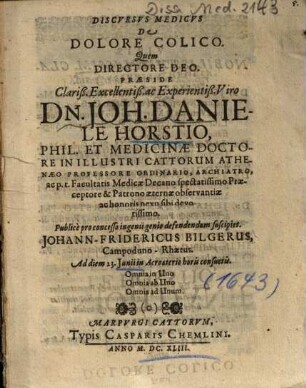 Diss Med. 2143
DISCVRSVS MEDICVS
De
DOLORE COLICO.
Quem
DIRECTORE DEO.
PRÆSIDE
Clariß. Excellentiß. ac Experientiß. Viro
DN. JOH. DANIE-
LE HORSTIO,
PHIL. ET MEDICINÆ DOCTO
RE IN ILLUSTRI CATTORUM ATHE
NÆO PROFESSORE ORDINARIO, ARCHIATRO,
ac p. t. Facultatis Medicæ Decano spectatissimo Præ-
ceptore & Patrono æternæ observantiæ
ac honoris nexu sibi devo
tissimo.
Publicè pro concesso ingenii genio defendendum suscipiet.
JOHANN-FRIDERICUS BILGERUS,
Campoduno-Rhætus.
Ad diem 23. Junii in Acroaterio horis consuetis.
Omnia in Uno
Omnia ab Uno
Omnia ad Unum.
(1643)
(o)
MARPURGI CATTORVM,
Typis CASPARIS CHEMLINI.
ANNO M. DC. XLIII.